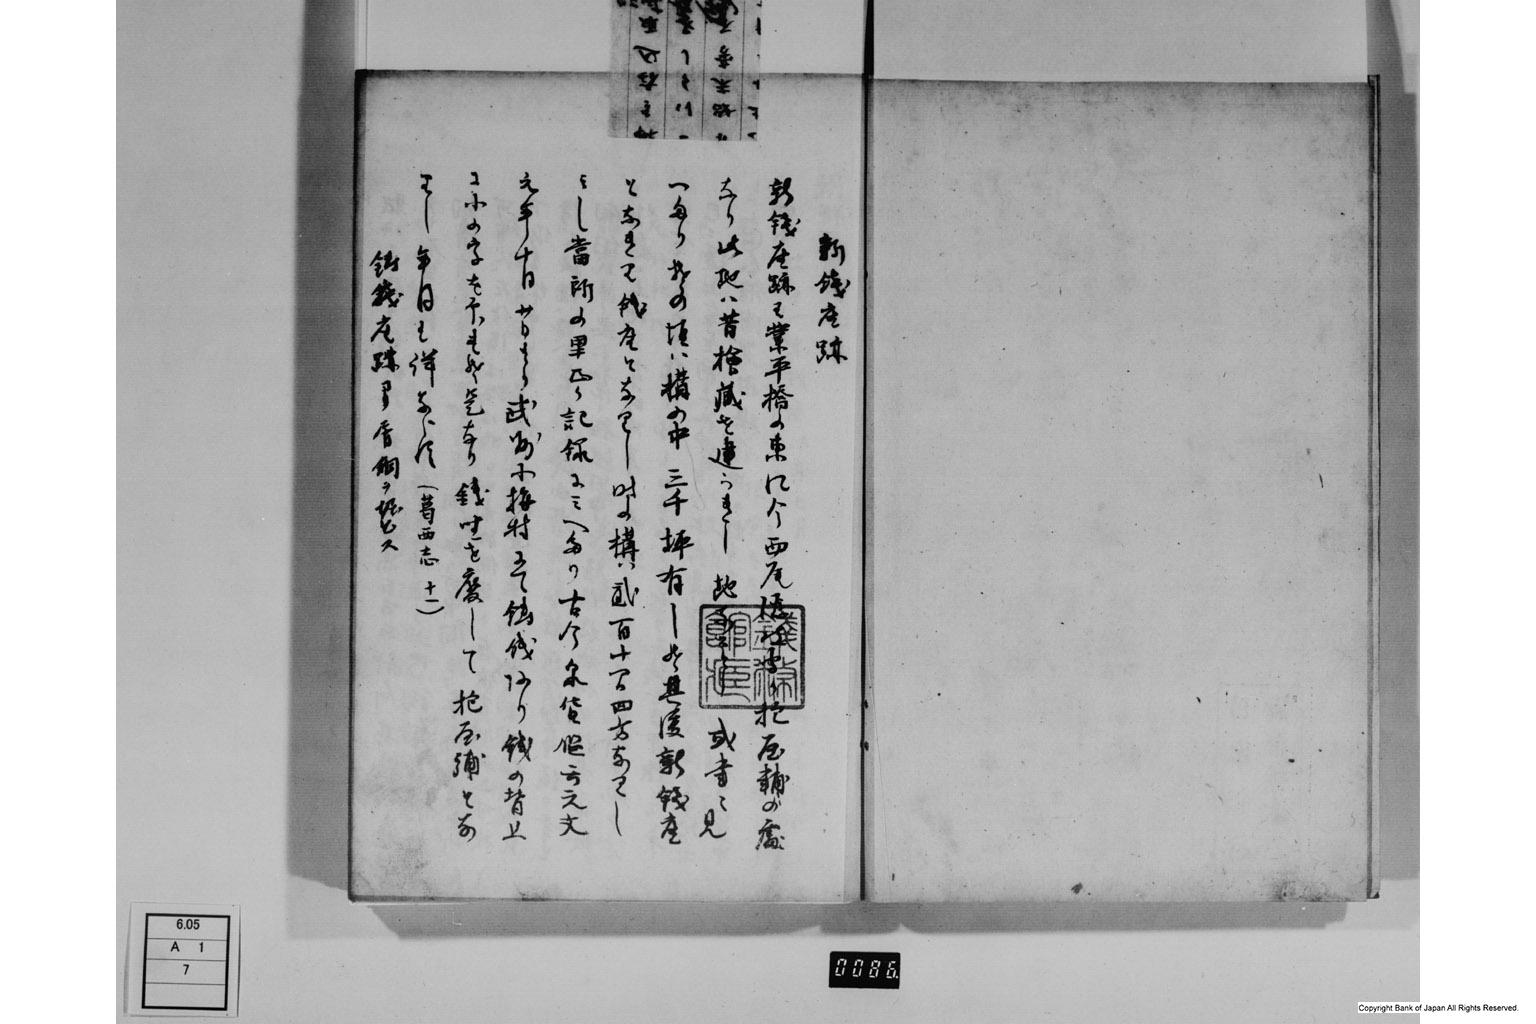 新銭座跡
新銭座跡ハ業平橋の東に今西尾
抱屋輔の處
なり此地ハ昔檜蔵を建られし地
或書ニ見
へたり其の頃ハ構の中三千坪有し其後新銭座
となれり銭座となりし時の構ハ貳百十間四方なりし
よし當所の里正か記録に見へたり古今泉貨
云元文
元年十月廿日より武州小梅村にて鋳銭あり銭の背上
に小の字
是なり銭座を廢して抱屋鋪とな
りし年月は詳ならす(葛西志十一)
鋳銭座跡
銅ヲ堀出ス
6.05
A 1
7
0086
Copyright Bank of Japan All Rights Reserved.